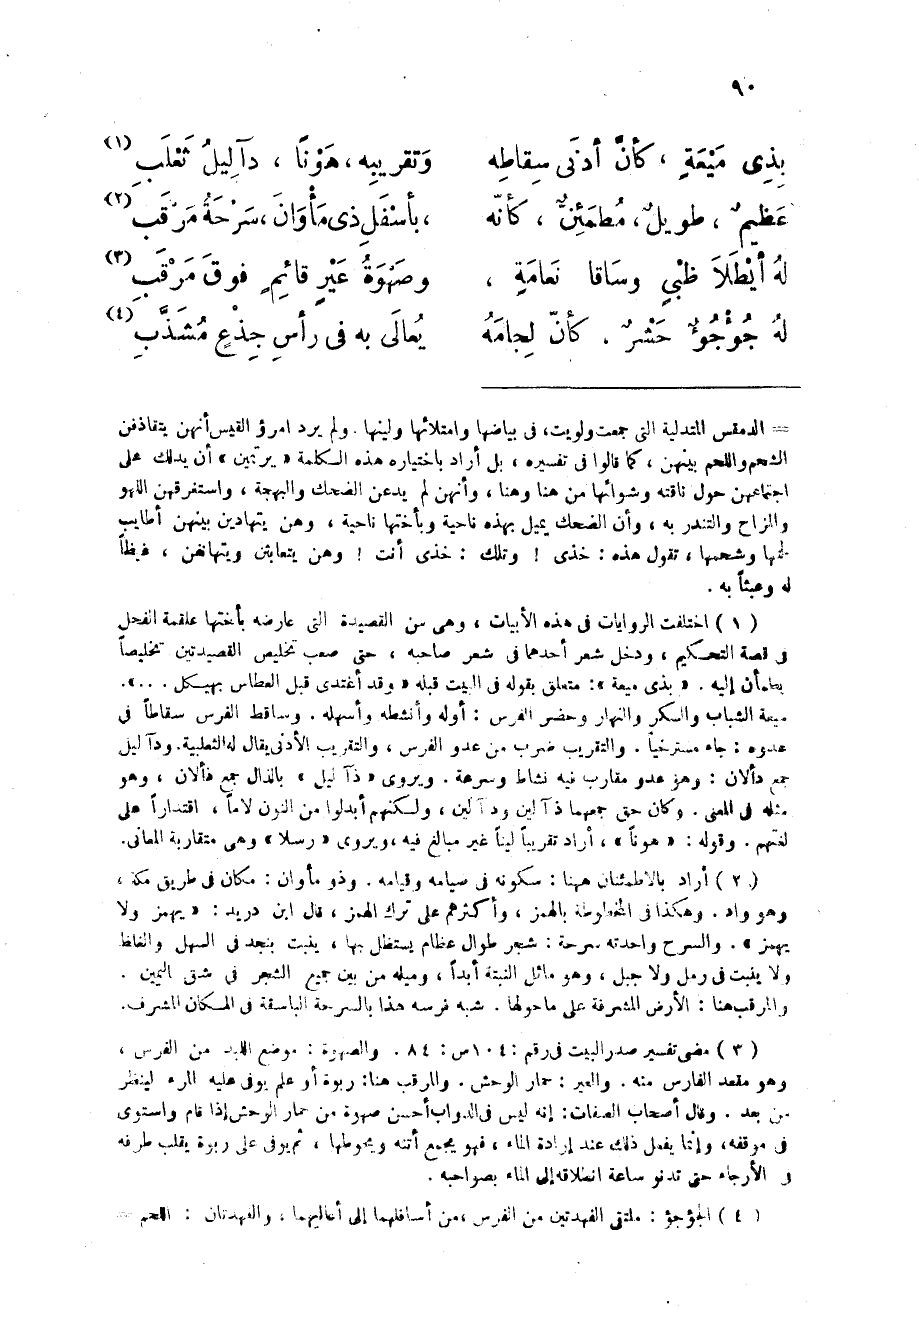 ٩٠
بِذِى مَيْعَةٍ ، كأنَّ أدنَى سِقاطِه وَتقريبِه ، هَوْنًا ، دآلِيلُ ثَعْلَبِ (١)
عَظيمٌ ، طويلٌ ، مُطمَئِنٌّ ، كأنّه ، بأسْفَلِ ذى مَأْوَانَ ، سَرْحَةُ مَرْقَبِ (٢)
لهُ أَيْطَلاَ ظَبْيٍ وسَاقا نَعامَةٍ ، وصَهْوَةُ عَيْرٍ قائِمٍ فوقَ مَرْقَبِ (٣)
لهُ جُؤْجُؤٌ حَشْرٌ . كأنّ لِجامَهُ يُعالَى به فى رأسِ جِذْعٍ مُشَذَّبِ (٤)
= الدمقس المتدلية التى جمعت ولويت، فى بياضها وامتلائها ولينها . ولم يرد امرؤ القيس أنهن يتقاذفن
الشحم واللحم بينهن ، كما قالوا فى تفسيره ، بل أراد باختياره هذه الكلمة « يرتمين » أن يدلك على
اجتماعهن حول ناقته وشوائها من هنا وهنا ، وأنهن لم يدعن الضحك والبهجة ، واستفرقهن اللهو
والمزاح والتندر به ، وأن الضحك يميل بهذه ناحية وبأختها ناحية ، وهن يتهادين بينهن أطايب
لحمها وشحمها ، تقول هذه : خذى ! وتلك : خذى أنت ! وهن يتعابثن ويتهانفن ، غيظاً
له وعبثاً به .
( ١ ) اختلفت الروايات فى هذه الأبيات ، وهى من القصيدة التى عارضه بأختها علقمة الفحل
فى قصة التحكيم ، ودخل شعر أحدهما فى شعر صاحبه ، حتى صعب تخليص القصيدتين تخليصاً
يطمأن إليه . « بذى ميعة » : متعلق بقوله فى البيت قبله « وقد أغتدى قبل العطاس بهيكل . . .» .
ميعة الشباب والسكر والنهار وحضر الفرس : أوله وأنشطه وأسهله . وساقط الفرس سقاطاً فى
عدوه : جاء مسترخياً . والتقريب ضرب من عدو الفرس ، والتقريب الأدنى يقال له الثعلبية. ودآ ليل
جمع دألان : وهو عدو مقارب فيه نشاط وسرعة . ويروى « ذآ ليل » بالذال جمع ذألان ، وهو
مثله فى المعنى . وكان حق جمعهما ذآ لين ودآ لين ، ولكنهم أبدلوا من النون لاماً ، اقتداراً على
لغتهم . وقوله : « هوناً » ، أراد تقريباً ليناً غير مبالغ فيه ، ويروى « رسلا » وهى متقاربة المعانى.
( ٢ ) أراد بالاطمئنان ههنا : سكونه فى صيامه وقيامه . وذو مأوان : مكان فى طريق مكة ،
وهو واد . وهكذا فى المخطوطة بالهمز ، وأكثرهم على ترك الهمز ، قال ابن دريد : « يهمز ولا
يهمز » . والسرح واحدته سرحة : شجر طوال عظام يستظل بها ، ينبت بنجد فى السهل والغلظ
ولا ينبت فى رمل ولا جبل ، وهو مائل النبتة أبداً ، وميله من بين جميع الشجر فى شق اليمين .
والمرقب هنا : الأرض المشرفة على ماحولها . شبه فرسه هذا بالسرحة الباسقة فى المكان المشرف.
( ٣ ) مضى تفسير صدر البيت فى رقم : ١٠٤ ص : ٨٤ . والصهوة : موضع اللبد من الفرس ،
وهو مقعد الفارس منه . والعير : حمار الوحش . والمرقب هنا: ربوة أو علم يوفى عليه المرء لينظر
من بعد . وقال أصحاب الصفات : إنه ليس فى الدواب أحسن صهوة من حمار الوحش إذا قام واستوى
فى موقفه، وإنما يفعل ذلك عند إرادة الماء ، فهو يجمع أتنه ويحوطها ، ثم يوفى على ربوة يقلب طرفه
فى الأرجاء حتى تدنو ساعة انطلاقه إلى الماء بصواحبه .
( ٤ ) الجؤجؤ : ملتقى الفهدتين من الفرس ، من أسافلهما إلى أعاليهما ، والفهدتان : اللحم =